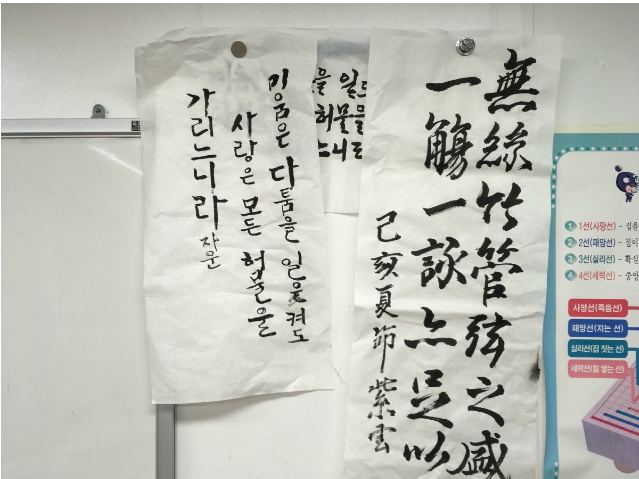 미움은 다툼을 일으켜도
사랑은 모든 허물을
가리느니라
자운
허물을
無絲竹管弦之盛
一觴一詠亦足以
己亥夏節紫雲
1 1선(사망선) -
2 2선(패망선) -
3 3선(실리선) - 확실
4 4선(세력선) - 중앙
사망선(죽음선)
패망선(지는 선)
실리선(집 짓는 선)
세력선(힘 쌓는 선)